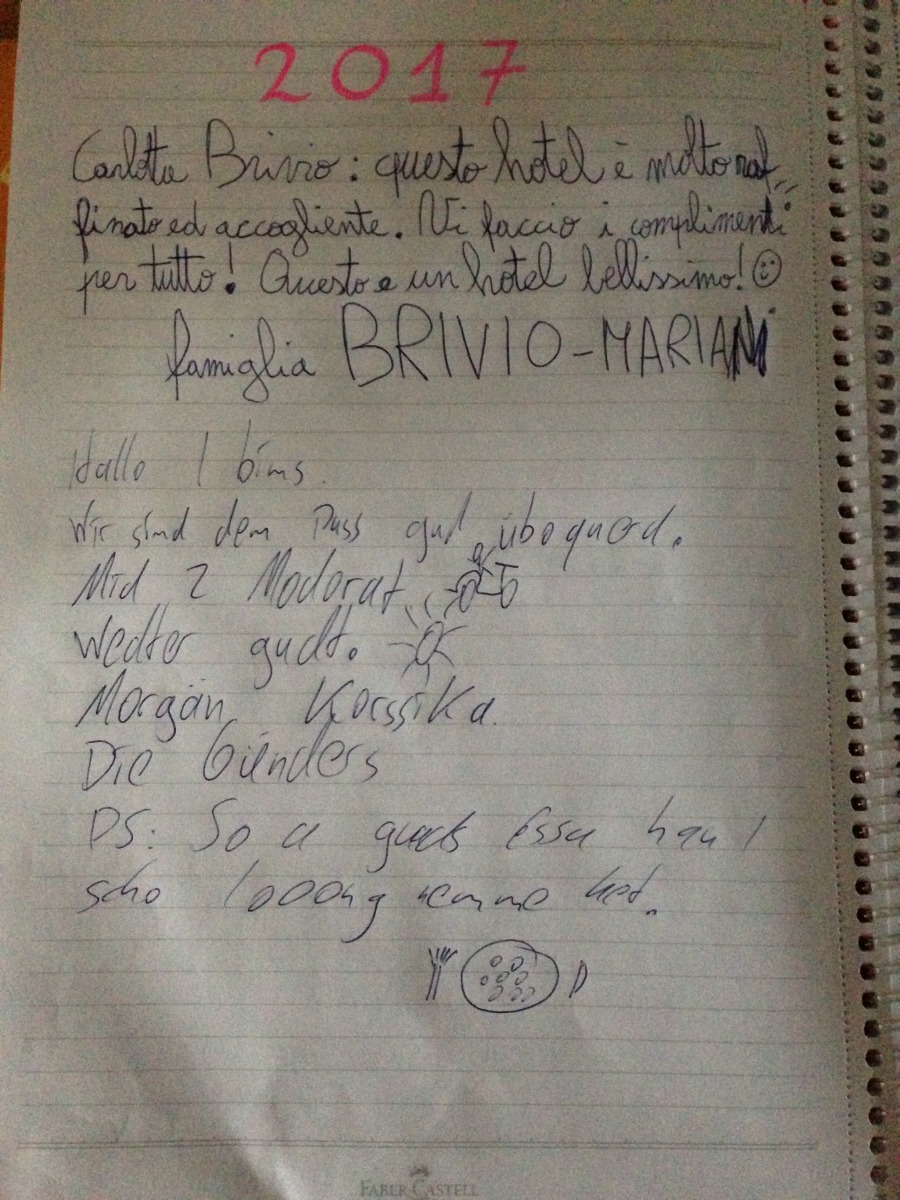 2017
Carlotta Brivio: questo hotel è molto raf
finato ed accogliente. Vi faccio i complimenti
per tutto! Questo e un hotel bellissimo! ☺
famiglia BRIVIO-MARIANI
Hallo I bims.
Wir sind dem Pass gud übaquerd.
Mid 2 Modorat
Wedter gudt.
Morgän Korssika.
Die
PS: So a guads Essa hau I
scho looong nemme het.
FABER-CASTELL